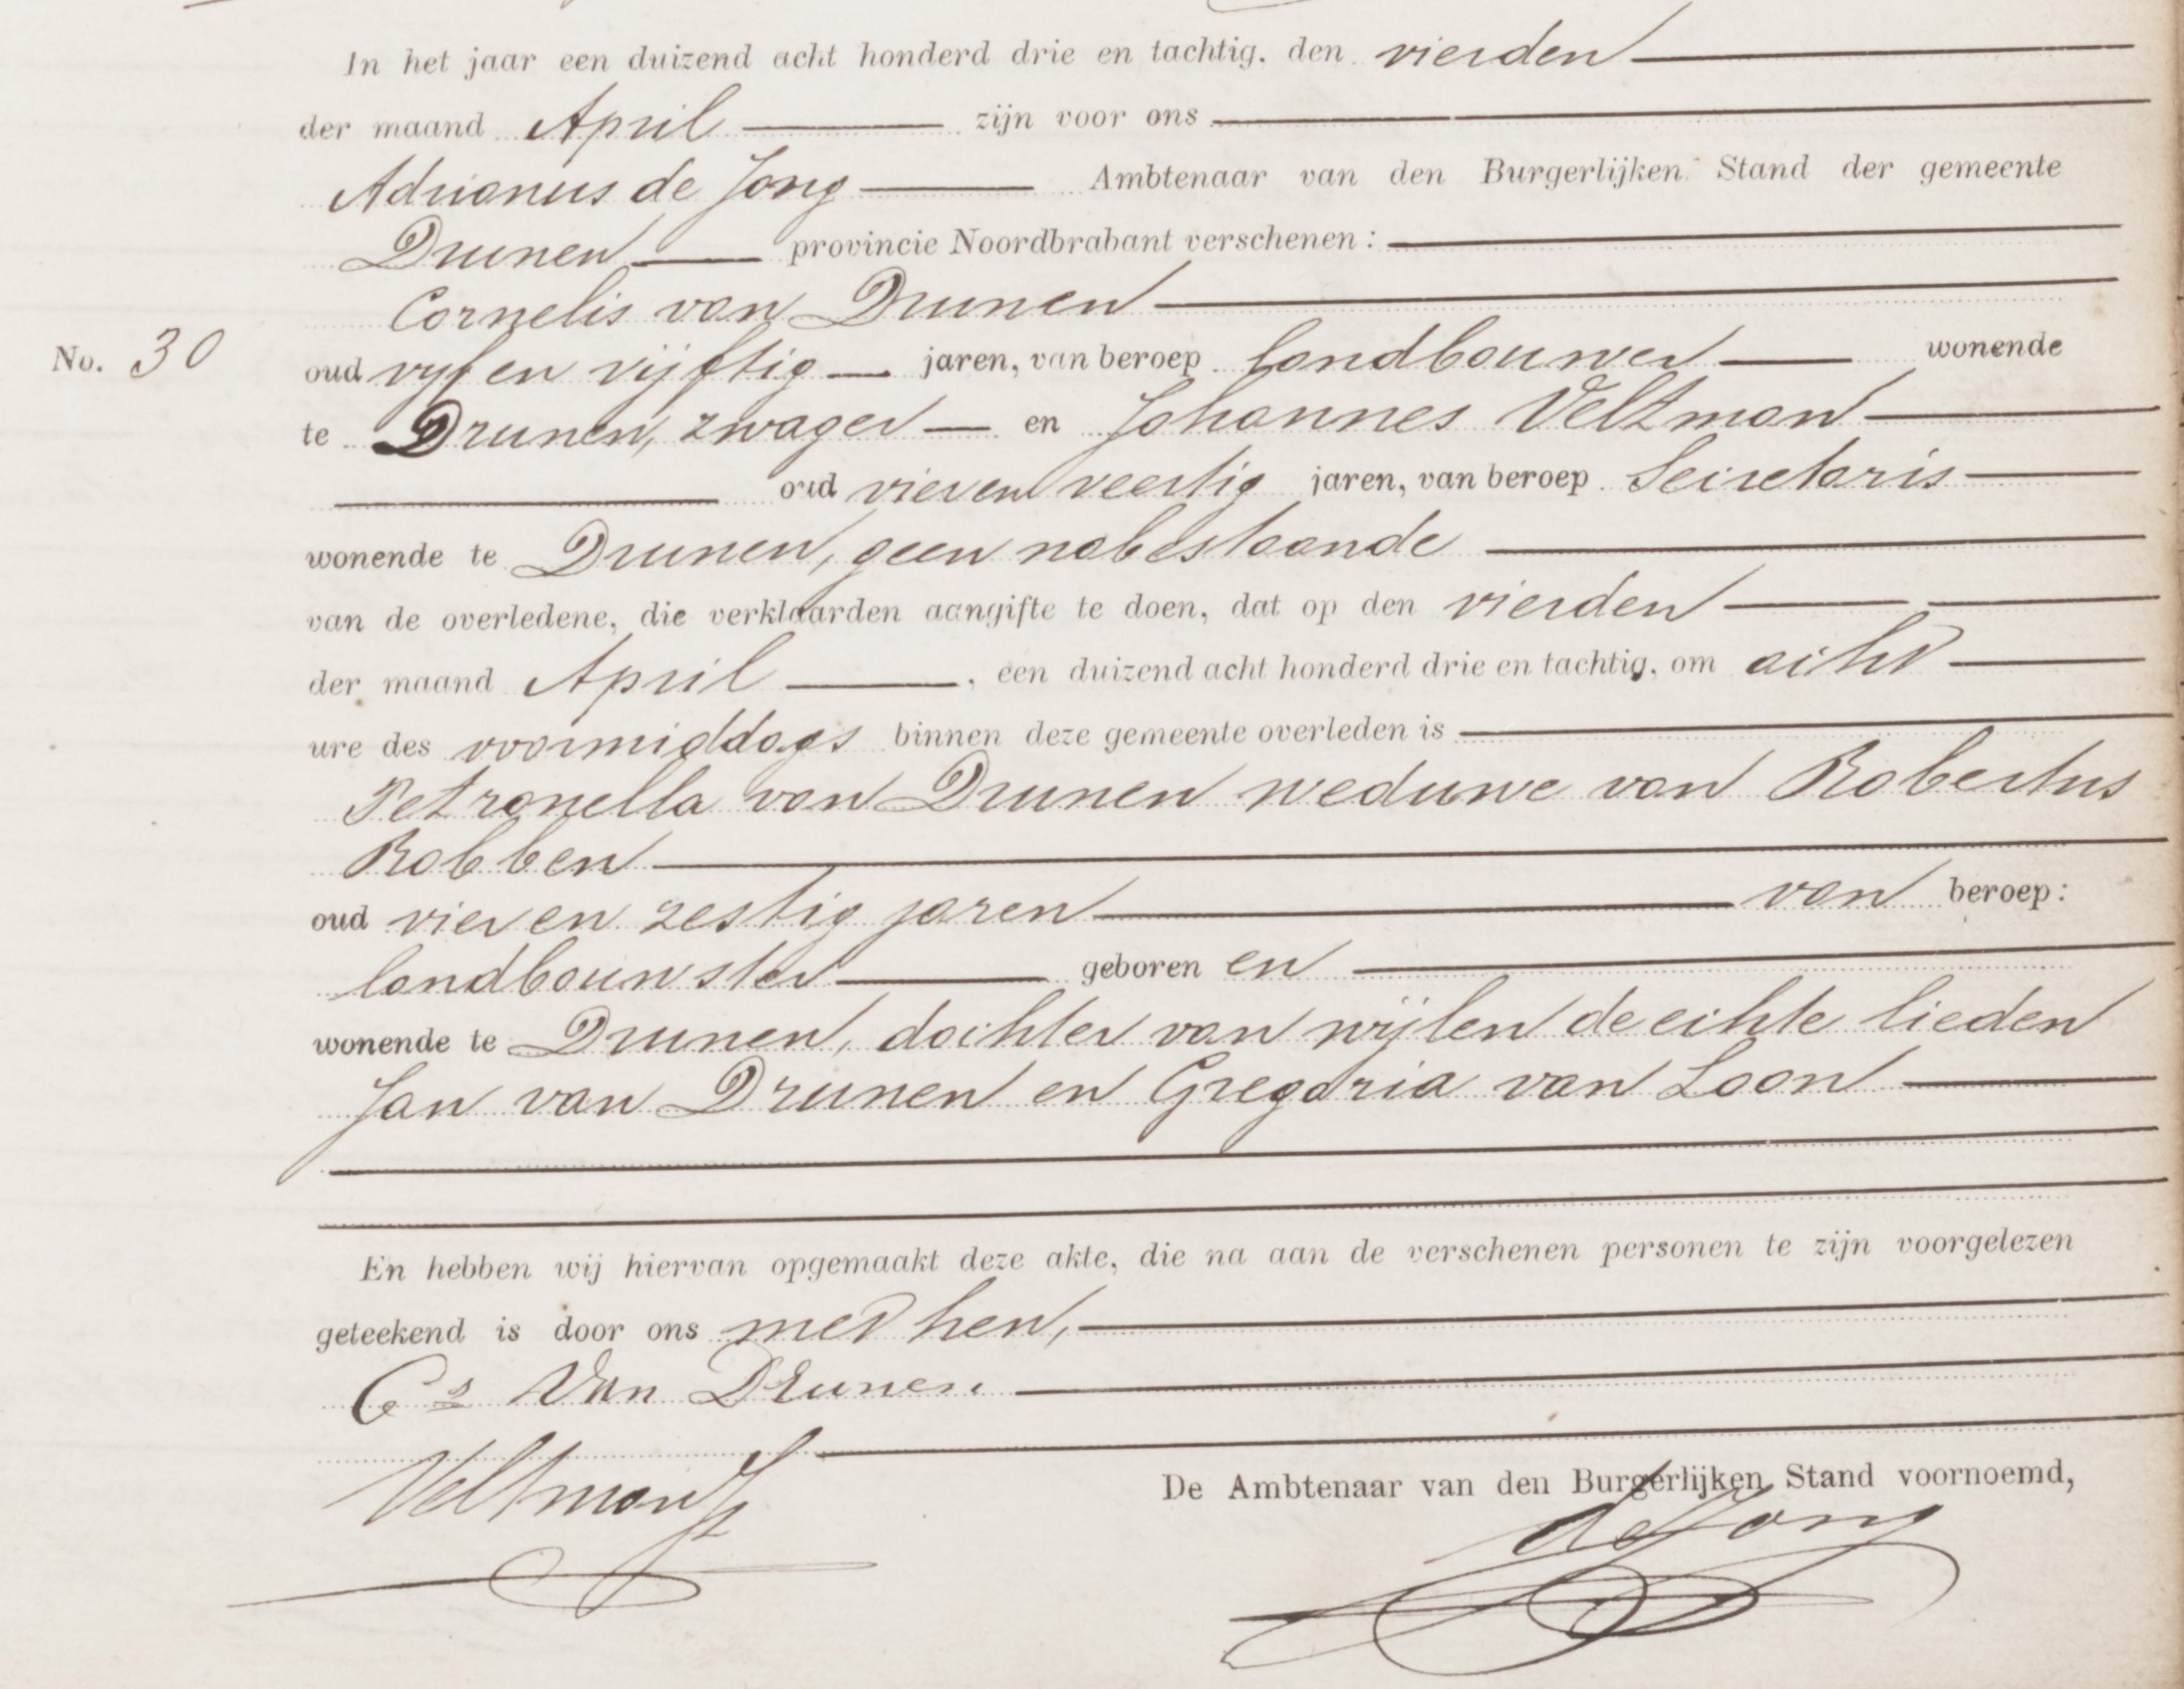 In het jaar een duizend acht honderd drie en tachtig, den vierden
der maand April zijn voor ons
Adrianus de Jong Ambtenaar van den Burgerlijken Stand der gemeente
Drunen provincie Noordbrabant verschenen:
Cornelis van Drunen
No. 30
oud vyf en vijftig jaren, van beroep landbouwer wonende
te Drunen, zwager en Johannes Veltman
oud vier en veertig jaren, van beroep Secretaris
wonende te Drunen, geen nabestaande
van de overledene, die verklaarden aangifte te doen, dat op den vierden
der maand April, een duizend acht honderd drie en tachtig, om acht
ure des voormiddags binnen deze gemeente overleden is
Petronella van Drunen weduwe van Robertus
Robben
oud vier en zestig jaren van beroep:
landbouwster geboren en
wonende te Drunen, dochter van wijlen de echte lieden
Jan van Drunen en Gregoria van Loon
En hebben wij hiervan opgemaakt deze akte, die na aan de verschenen personen te zijn voorgelezen
geteekend is door ons met hen,
Cs Van Drunen
Veltman
De Ambtenaar van den Burgerlijken Stand voornoemd,
de Jong